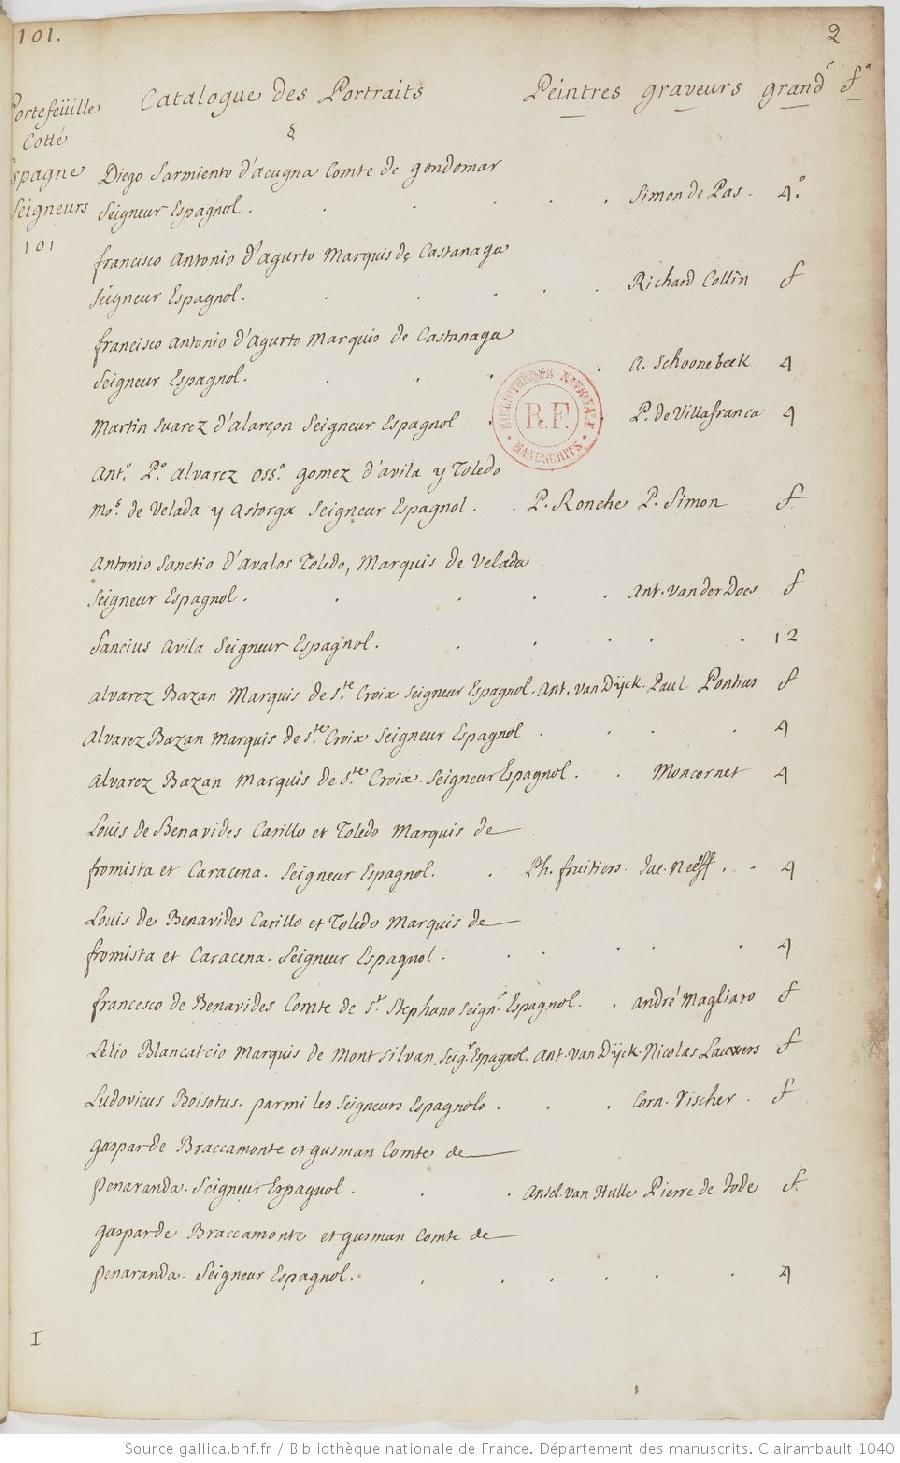 101.
2
Portefeüille
Cotté
Espagne
Seigneurs
101
Catalogue des Portraits
§
Peintres graveurs grandr fo
Diego Sarmiento d'acugna Comte de gondomar
Seigneur Espagnol. Simon de Pas. 4.o
francisco Antonio d'Agurto Marquis de Castanaga
Seigneur Espagnol. Richard Collin f
francisco Antonio d'Agurto Marquis de Castanaga
Seigneur Espagnol. A. Schoonebeek 4
Martin Suarez d'Alarçon Seigneur Espagnol P. de Villafranca 4
BIBLIOTHÈQUE NATIONALE
R.F.
MANUSCRITS
Anto. Po. Alvarez Osso. gomez d'avila y Toledo
Mos. de Velada y Astorga Seigneur Espagnol. P. Ronche P. Simon f
Antonio Sanctio d'Avalos Toledo, Marquis de Velada
Seigneur Espagnol. Ant. van der Does f
Sancius Avila Seigneur Espagnol. 12
Alvarez Bazan Marquis de Ste. Croix Seigneur Espagnol. Ant. van Dÿck. Paul Pontius f
Alvarez Bazan Marquis de Ste. Croix Seigneur Espagnol. 4
Alvarez Bazan Marquis de Ste. Croix. Seigneur Espagnol. Moncornet 4
Louis de Benavides Carillo et Toledo Marquis de
fromista et Caracena. Seigneur Espagnol. Ph. fruitiers. Jac. Neeff. 4
Louis de Benavides Carillo et Toledo Marquis de
fromista et Caracena. Seigneur Espagnol. 4
francesco de Benavides Comte de St. Stephano Seignr. Espagnol. André Magliaro f
Lelio Blancatcio Marquis de Mont Silvan. Seigr. Espagnol. Ant. van Dÿck. Nicolas Lauwers f
Ludovicus Boisotus. parmi les Seigneurs Espagnols. Corn. Vischer. f
gaspar de Braccamonte et gusman Comte de
Penaranda. Seigneur Espagnol. Ansel. van Hulle Pierre de Jode f.
gaspar de Braccamonte et gusman Comte de
Penaranda. Seigneur Espagnol. 4
I
Source gallica.bnf.fr / Bibliothèque nationale de France. Département des manuscrits. Clairambault 1040